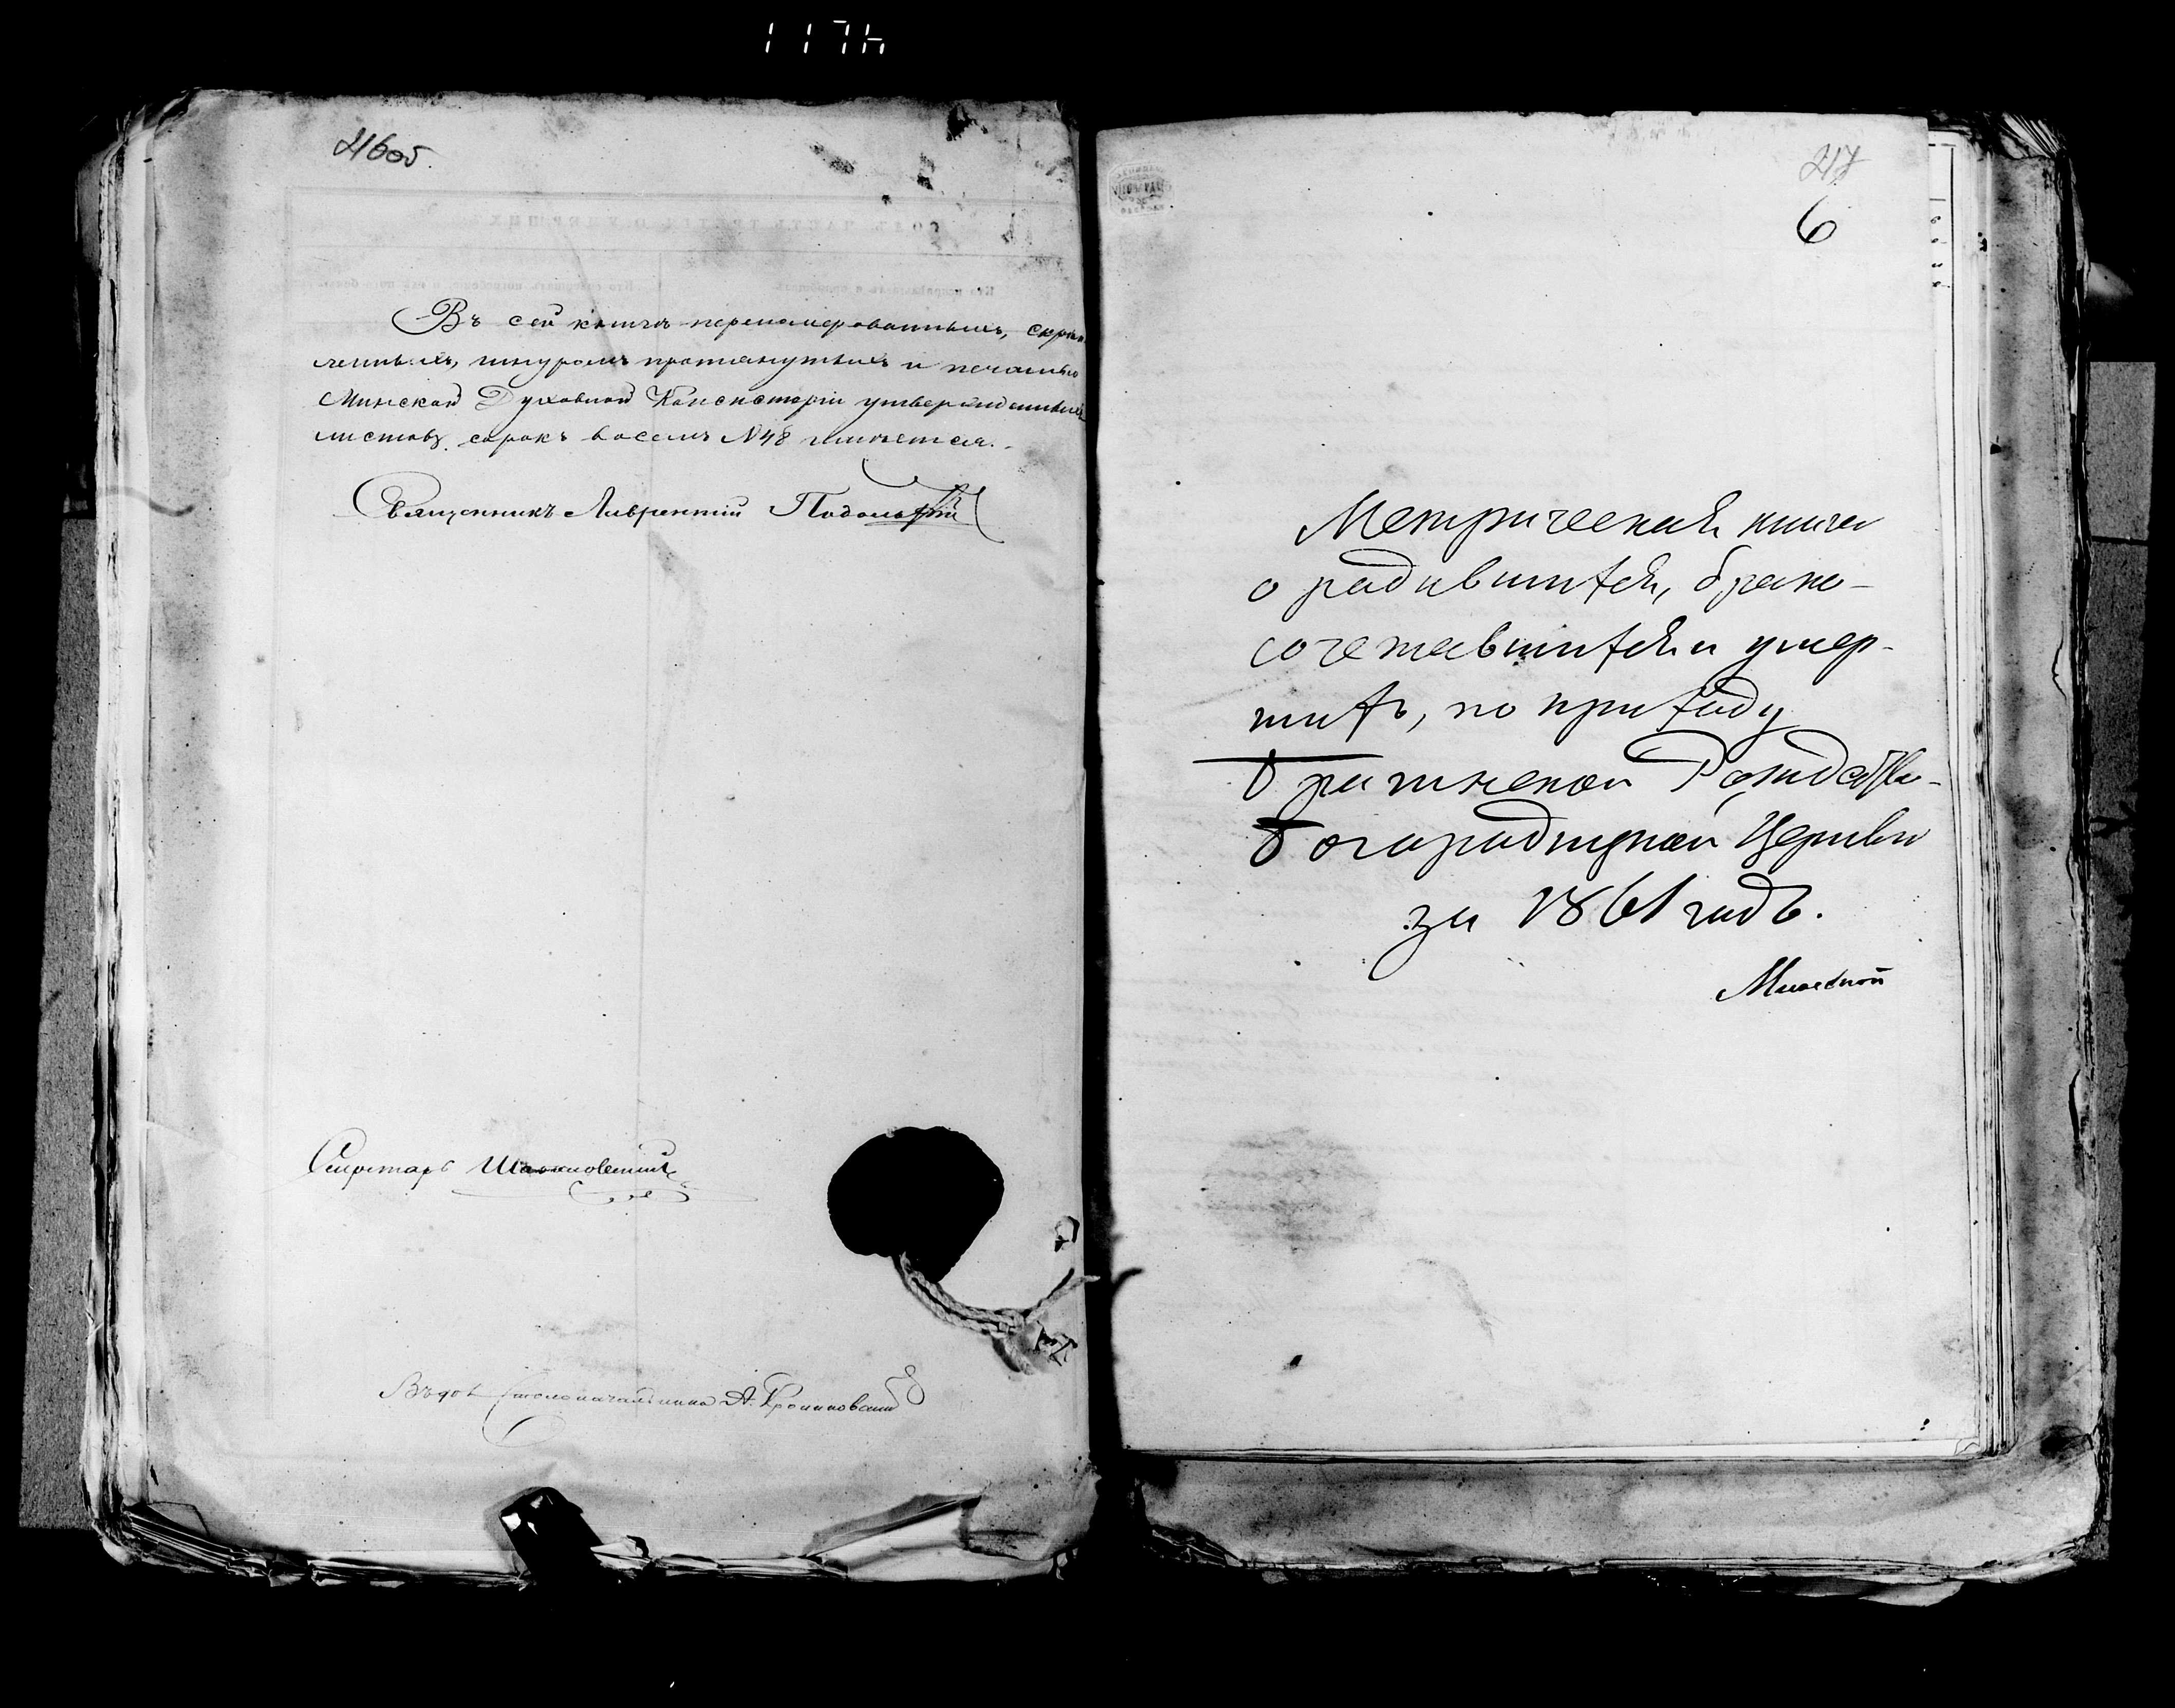 216об.
Въ сей книгѣ перенумерованныхъ, скрѣп
ленныхъ, шнуромъ протянутыхъ и печатью
Минской Духовной Консисторіи утвержденныхъ
листовъ сорокъ восемь №48 имѣется.
Священникъ Лаврентій Подольскій
Секретарь
Столоначальника А.
217
6
Метрическая книга
о родившихся, брако-
сочетавшихся и умер-
шихъ, по приходу
Рождество-
Богородичной Церкви
за 1861 годъ.